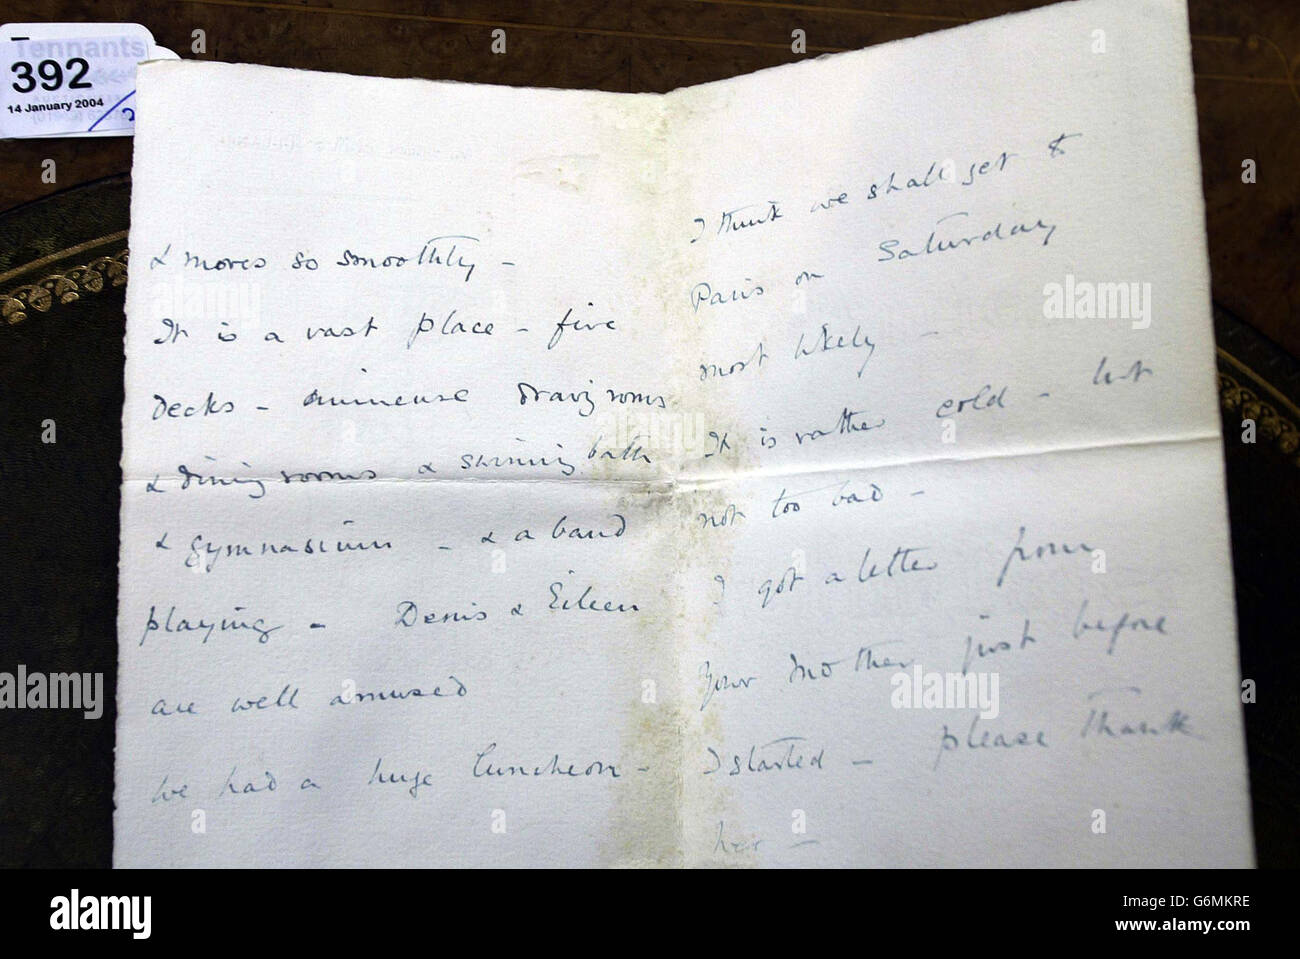 Tennants
392
14 January 2004
& moves so smoothly -
It is a vast place - five
decks - immense drawing rooms
& dining rooms & swimming bath
& gymnasium - & a band
playing - Denis & Eileen
are well amused
We had a huge luncheon -
I think we shall get to
Paris on Saturday
most likely -
It is rather cold - but
not too bad -
I got a letter from
your mother just before
I started - please thank
her -
alamy stock photo
G6MKRE
www.alamy.com